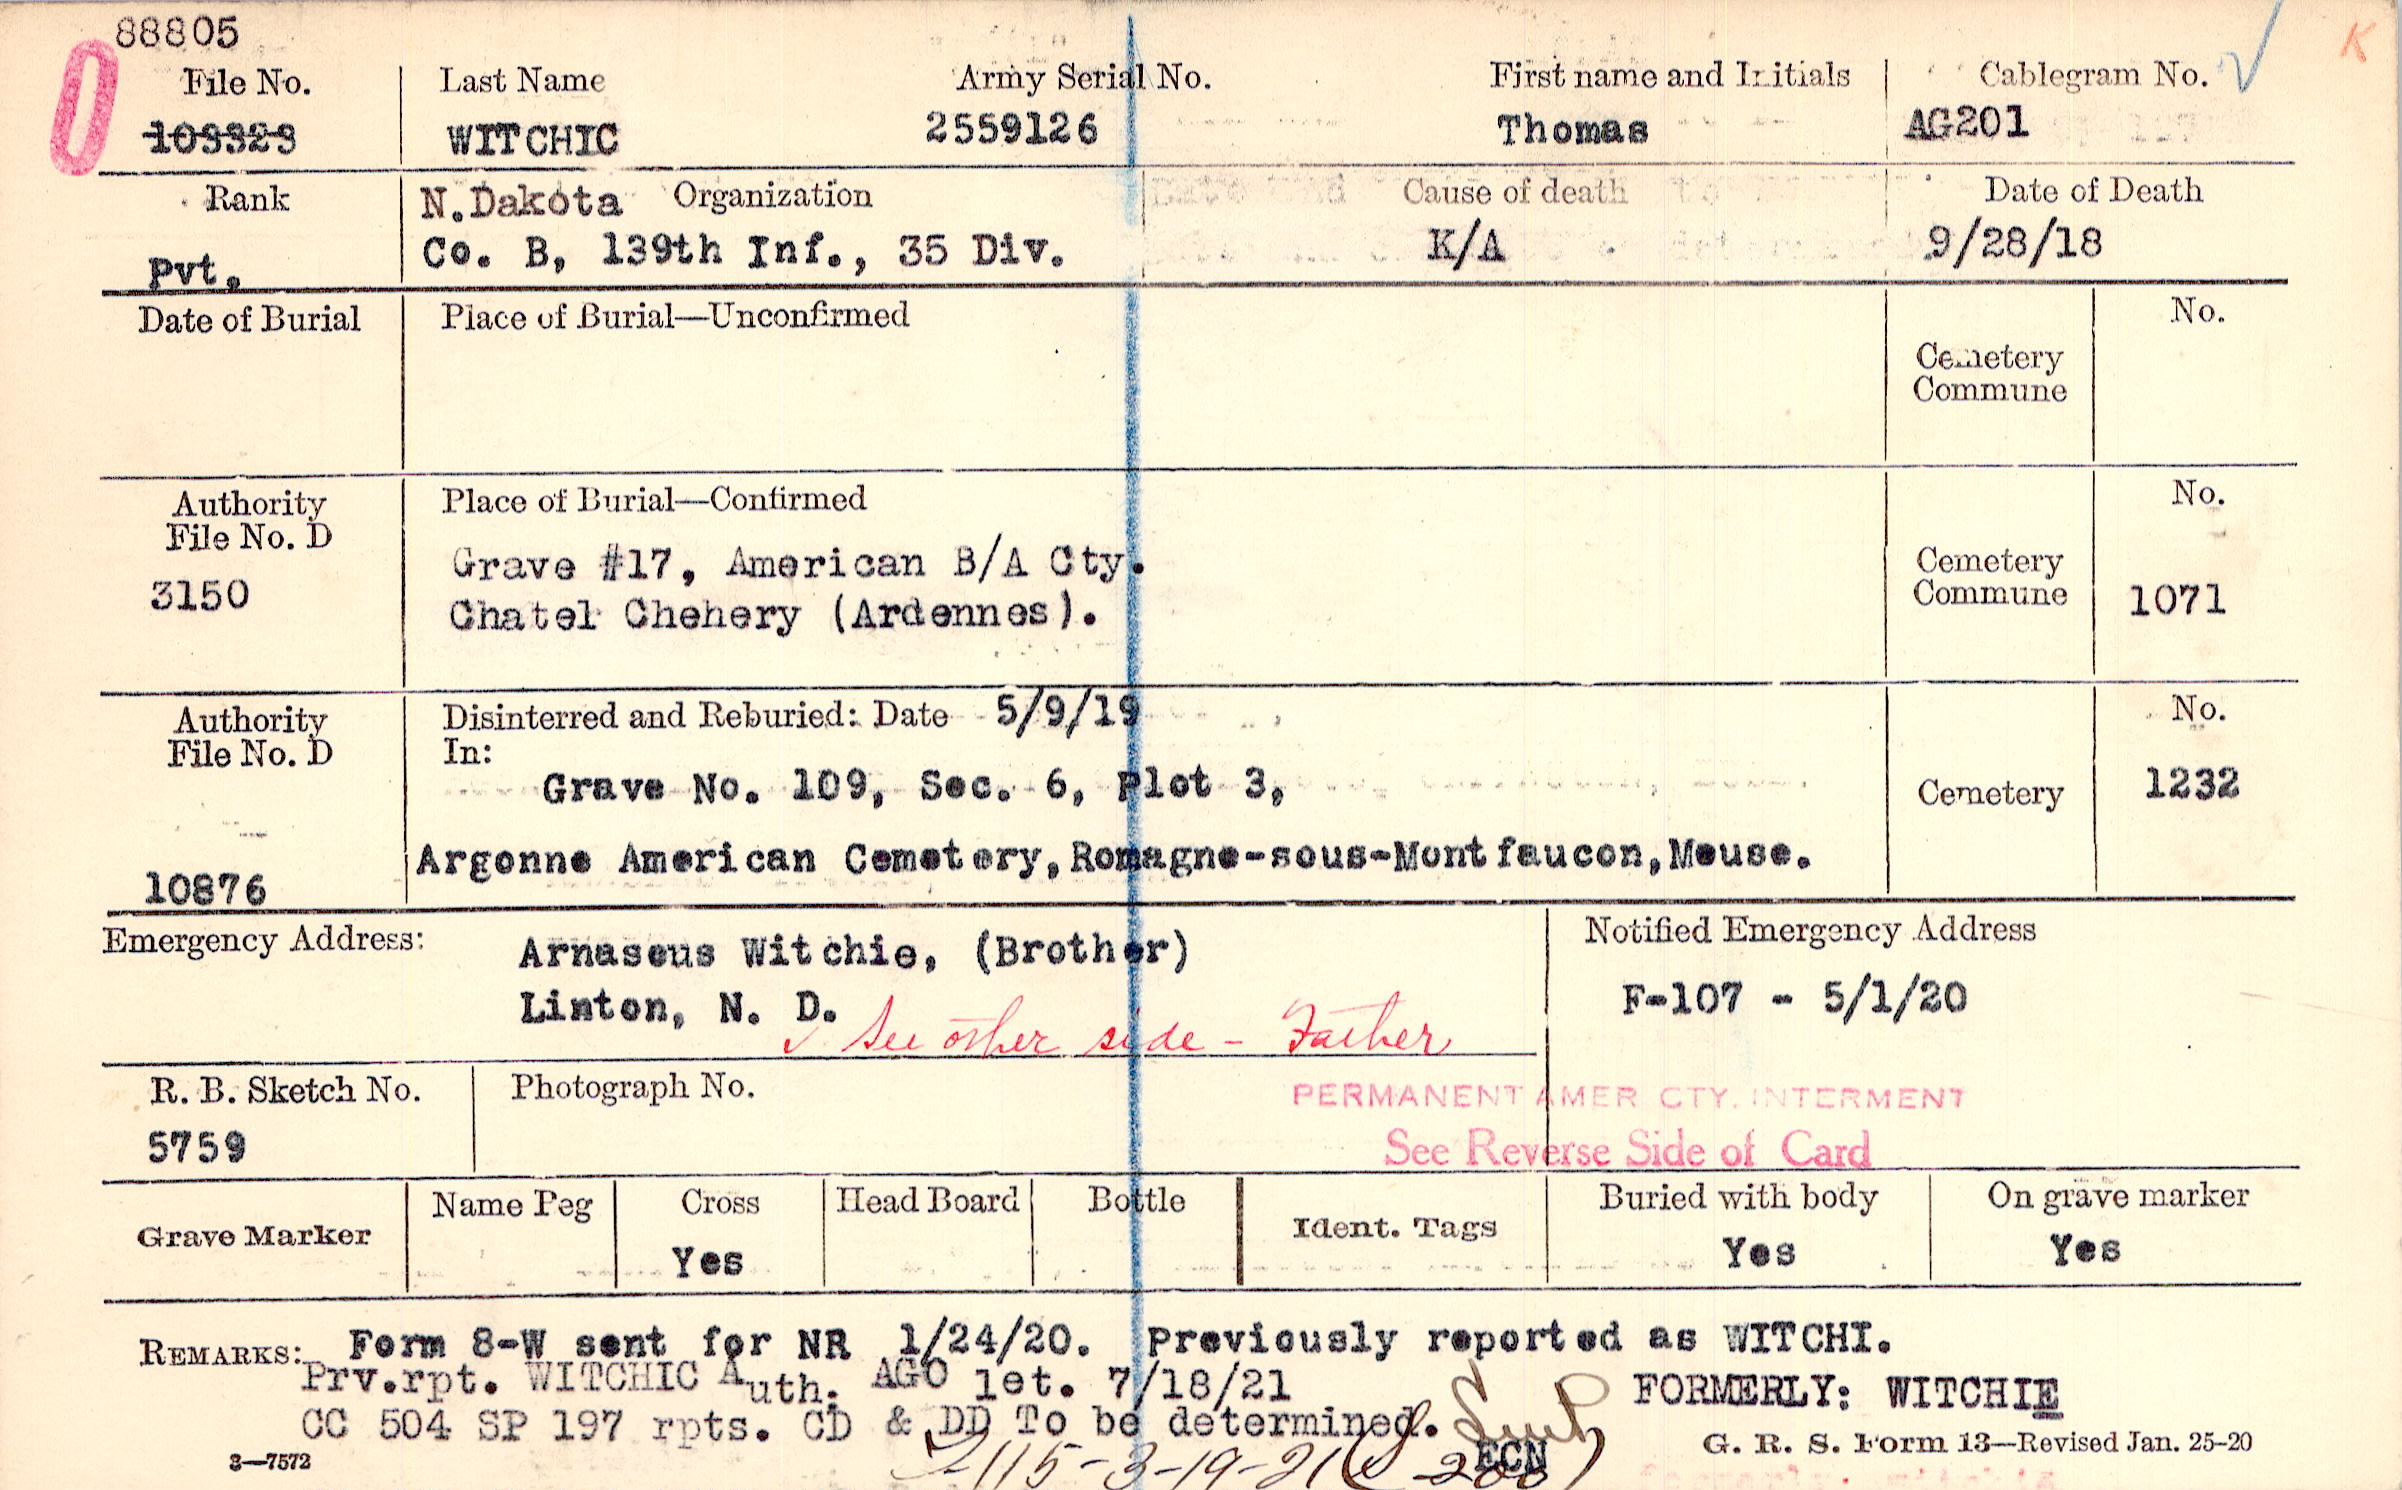 88805
File No. Last Name Army Serial No. First name and Initials Cablegram No. K
109323 WITCHIC 2559126 Thomas AG201
Rank N.Dakota Organization Cause of death Date of Death
Pvt. Co. B, 139th Inf., 35 Div. K/A 9/28/18
Date of Burial Place of Burial—Unconfirmed No.
Cemetery
Commune
Authority Place of Burial—Confirmed No.
File No. D
3150 Grave #17, American B/A Cty. Cemetery
Chatel Chehery (Ardennes). Commune 1071
Authority Disinterred and Reburied: Date 5/9/19 No.
File No. D In:
Grave No. 109, Sec. 6, Plot 3, Cemetery 1232
10876 Argonne American Cemetery, Romagne-sous-Montfaucon, Meuse.
Emergency Address: Arnaseus Witchie, (Brother) Notified Emergency Address
Linton, N. D. F-107 - 5/1/20
✓ See other side - Father
R. B. Sketch No. Photograph No. PERMANENT AMER CTY. INTERMENT
5759 See Reverse Side of Card
Grave Marker Name Peg Cross Head Board Bottle Ident. Tags Buried with body On grave marker
Yes Yes Yes
REMARKS: Form 8-W sent for NR 1/24/20. Previously reported as WITCHI.
Prv.rpt. WITCHIC Auth. AGO let. 7/18/21 FORMERLY: WITCHIE
CC 504 SP 197 rpts. CD & DD To be determined.
ECN
3—7572 G. R. S. Form 13—Revised Jan. 25-20